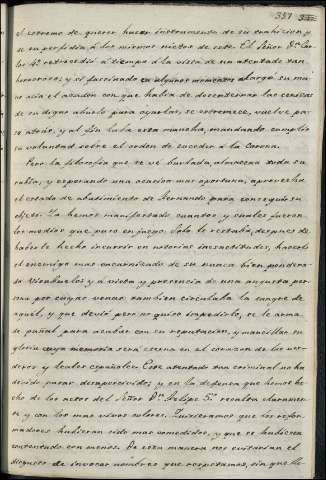 357
el extremo de querer hacer instrumento de su ambicion y
de su perfidia á los mismos nietos de este. El Señor Dn. Car-
los 4º retrocedió á tiempo á la vista de un atentado tan
horroroso; y si fascinado en algunos momentos alargó su ma-
no acia el azadon con que habia de desenterrar las cenizas
de su digno abuelo para ajarlas, se estremece, vuelve pa-
so atrás, y al fin lava esta mancha, mandando cumplir
su voluntad sobre el orden de suceder á la Corona.
Pero la filosofia que se vé burlada, almacena toda su
rabia, y esperando una ocasion mas oportuna, aprovecha
el estado de abatimiento de Fernando para conseguir su
objeto. Ya hemos manifestado cuantos y cuales fueron
los medios que puso en juego. Solo le restaba, despues de
haberle hecho incurrir en notorias inexactitudes, hacerle
el enemigo mas encarnizado de su nunca bien pondera-
do Visabuelo; y á vista y presencia de una augusta per-
sona por cuyas venas tambien circulaba la sangre de
aquel, y que debió pero no quiso impedirlo, se le arma
de puñal para acabar con su reputacion, y mancillar su
gloria cuya memoria será eterna en el corazon de los ver-
daderos y leales españoles. Este atentado tan criminal no ha
debido pasar desapercivido; y en la defensa que hemos he-
cho de los actos del Señor Dn. Felipe 5º resalta claramen-
te y con los mas vivos colores. Quisieramos que los refor-
madores hubieran sido mas comedidos, y que se hubieran
contentado con menos. De esta manera nos evitarian el
disgusto de invocar nombres que respetamos, sin que le